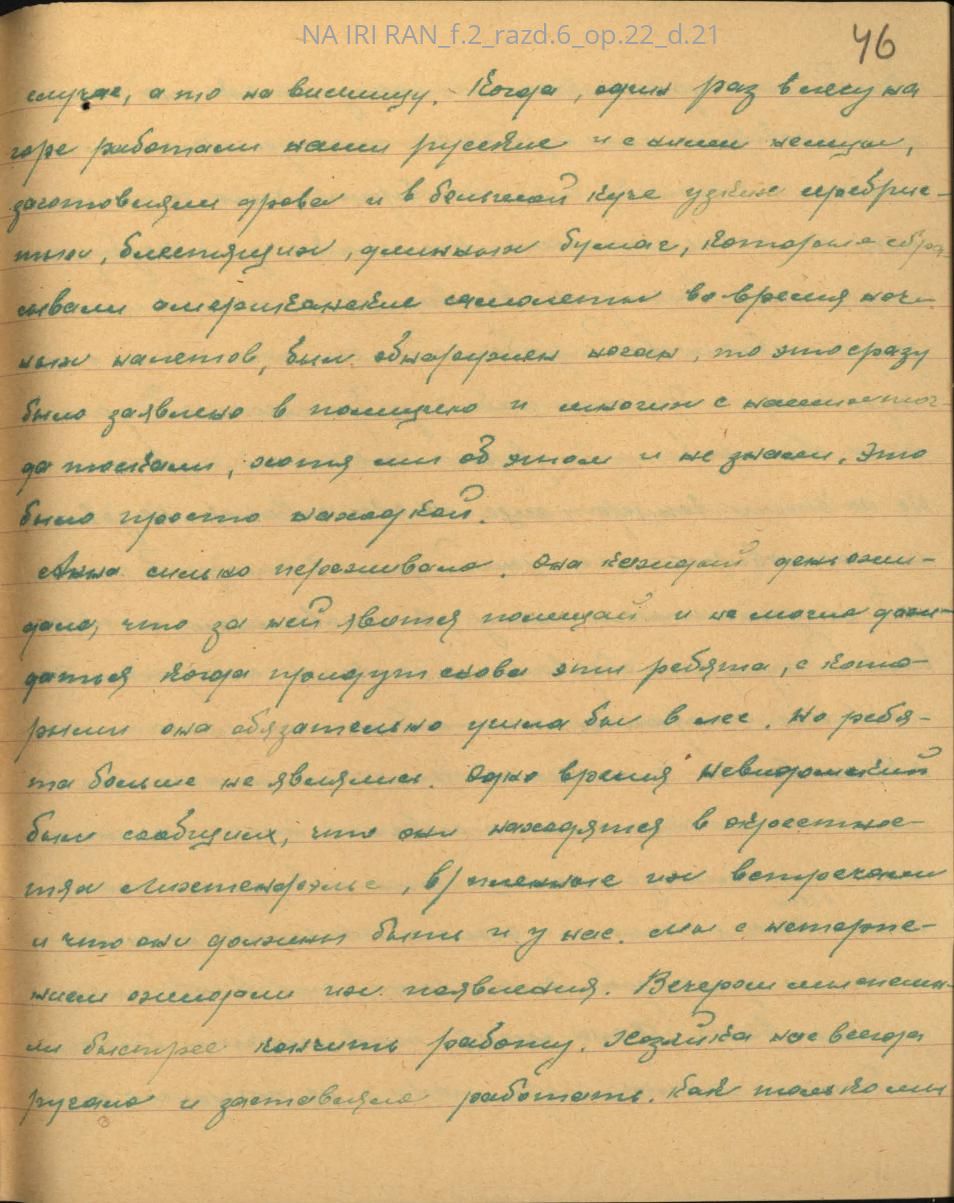 NA IRI RAN_f.2_razd.6_op.22_d.21
46
случае, а то на виселицу. Когда, один раз в лесу на
горе работали наши русские и с ними немцы,
заготовляли дрова и в большой куче узких серебрис-
тых, блестящих, длинных бумаг, которые сбра-
сывали американские самолеты во время ноч-
ных налетов, был обнаружен наган, то это сразу
было заявлено в полицию и многих с наших тог-
да таскали, хотя мы об этом и не знали. Это
было просто находкой.
Анна сильно переживала. Она каждый день ожи-
дала, что за ней явится полицай и не могла дожи-
даться когда придут снова эти ребята, с кото-
рыми она обязательно ушла бы в лес. Но ребя-
та больше не являлись. Одно время Невидомский
был сообщил, что они находятся в окрестнос-
тях, в/пленные их встречали
и что они должны быть и у нас. Мы с нетерпе-
нием ожидали их появления. Вечером мы
ли быстрее кончить работу. Хозяйка нас всегда
ругала и заставляла работать. Как только мы